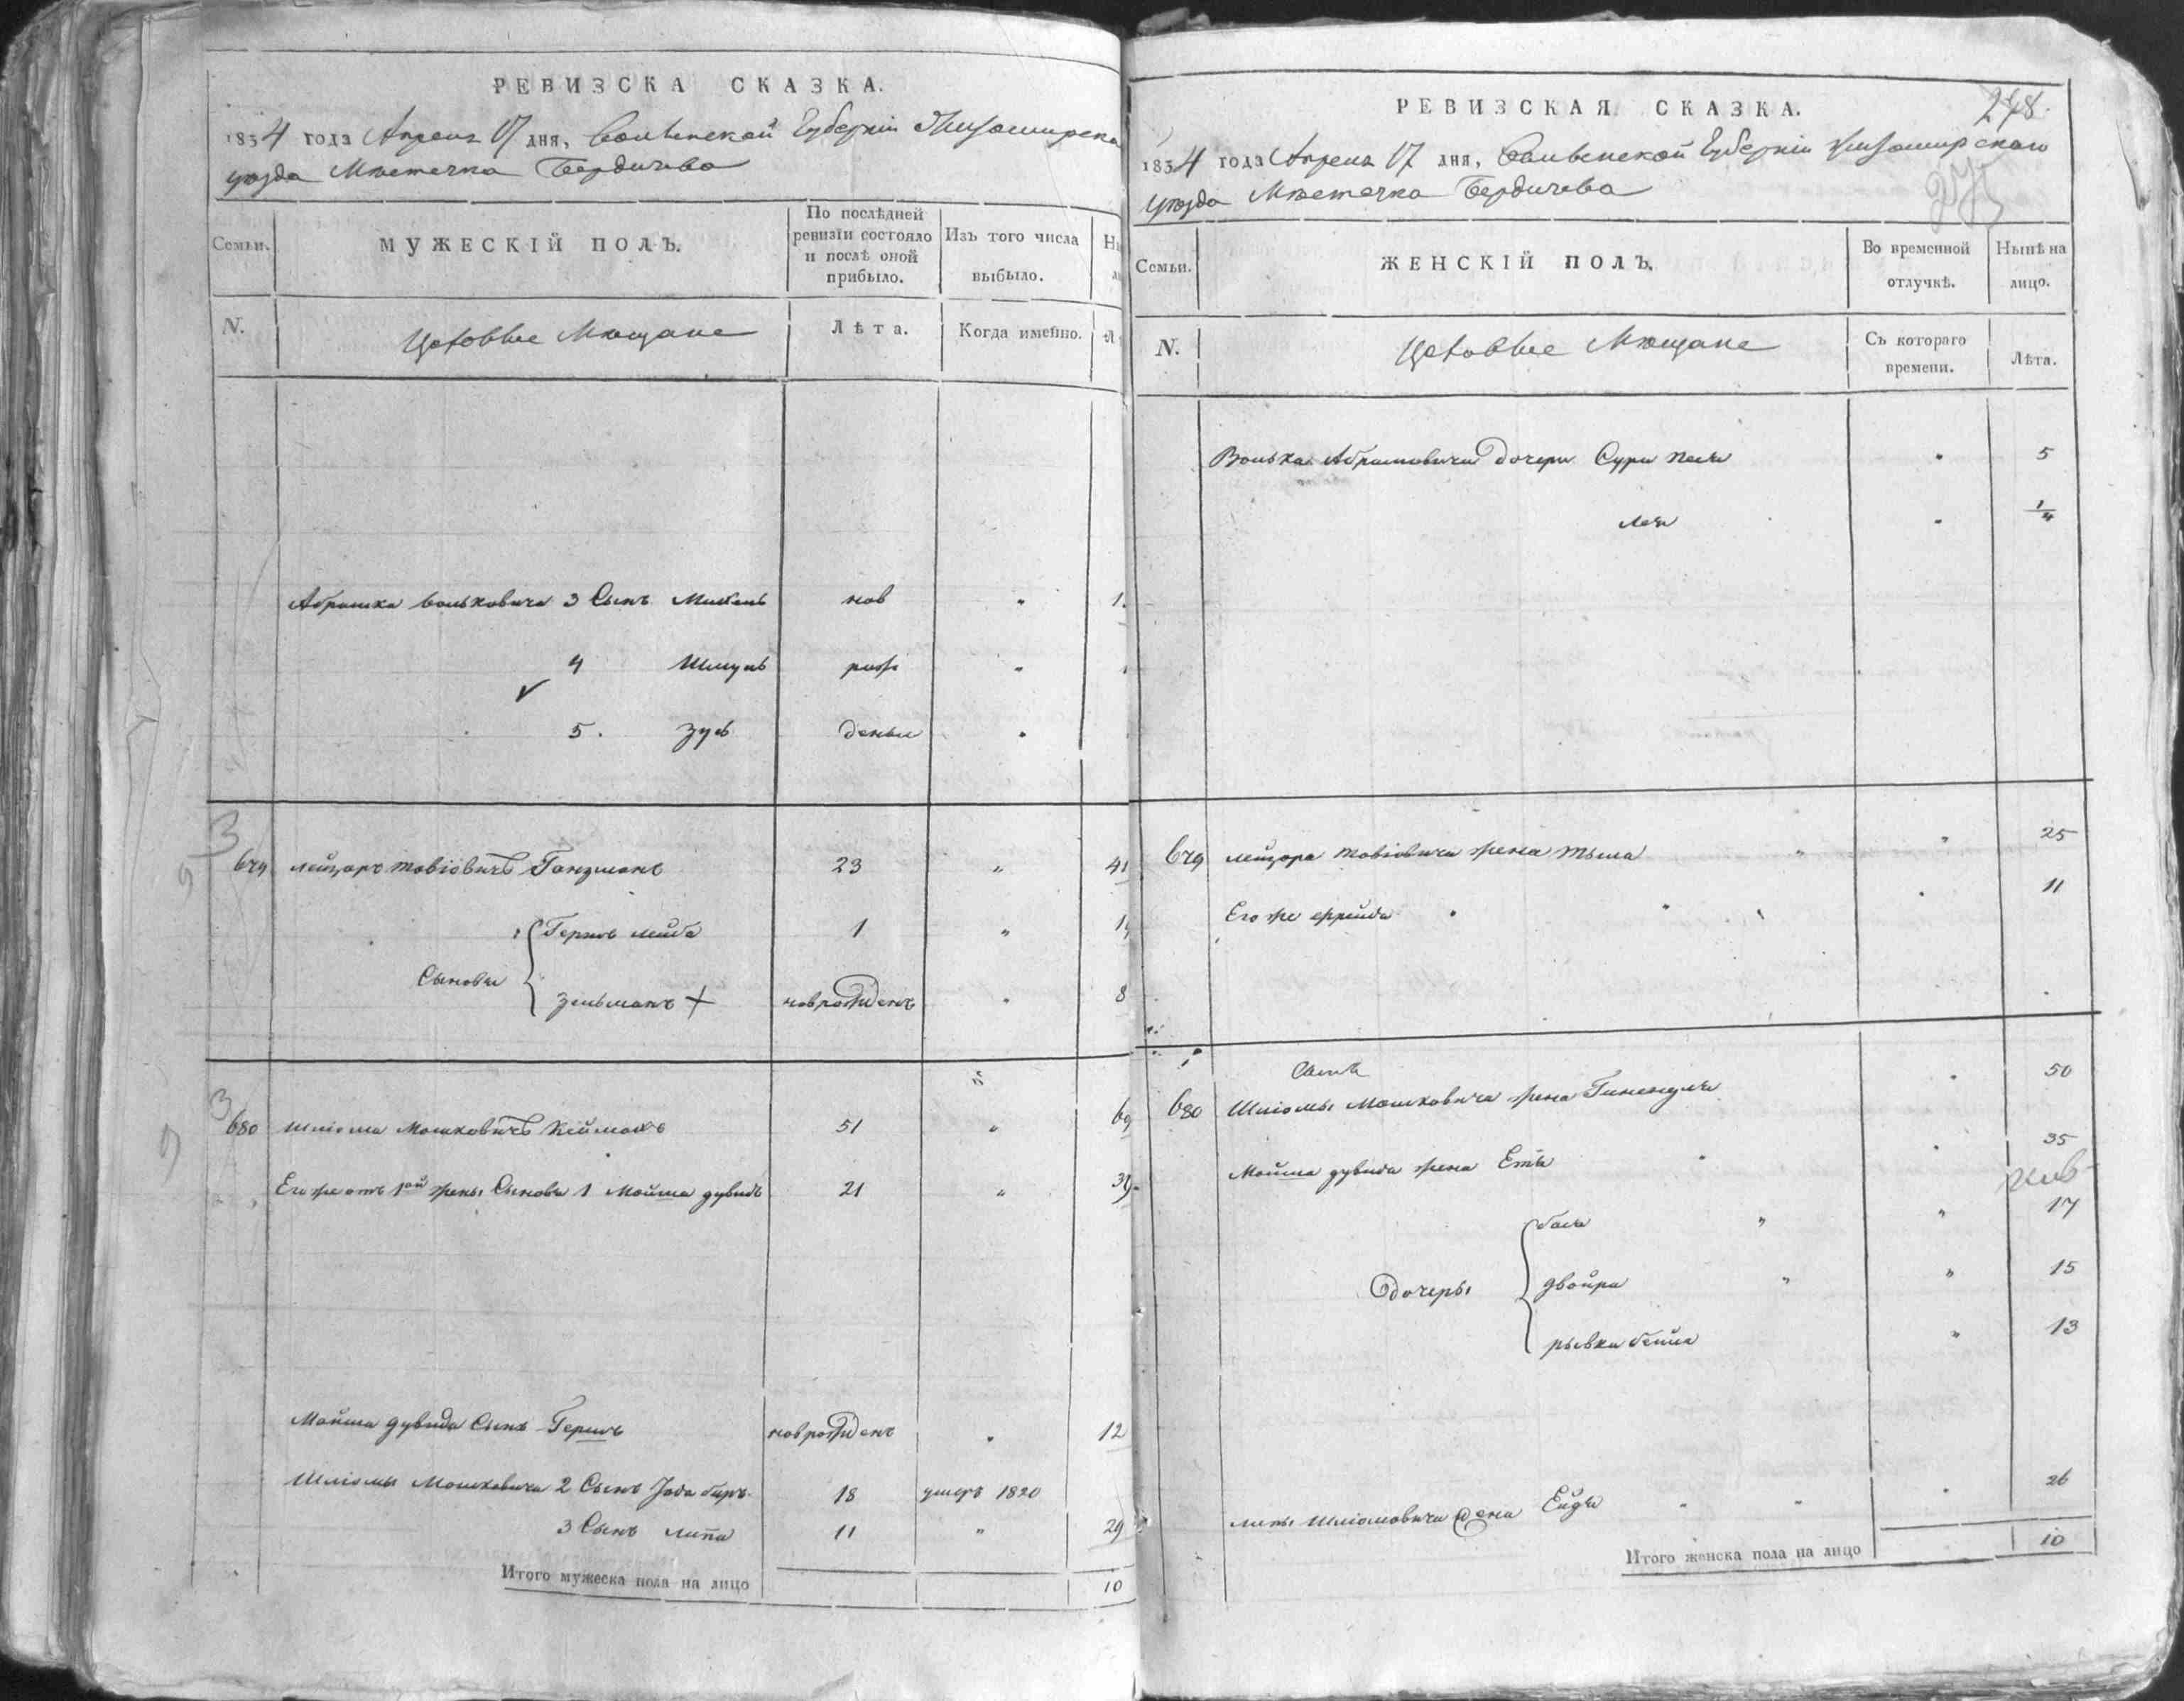 РЕВИЗСКА СКАЗКА.
1834 года Апреля 17 дня, Волынской Губернии Житомирска
уезда Местечка Бердичева
Семьи.
МУЖЕСКІЙ ПОЛЪ.
По послѣдней
ревизіи состояло
и послѣ оной
прибыло.
Изъ того числа
выбыло.
N.
Цеховые Мещане
Лѣта.
Когда имейно.
Абрамка Вольковича 3 Сынъ
нов
4 Шмуль
рож
5. Зусь
дены
679 Лейзоръ Товіовичъ Ганзманъ 23 " 41
Сыновья
Гершъ Лейба 1 "
Зельманъ + новрожденъ " 8
680 Шліома Мошковичъ 51 " 69
Его же отъ 1ой жены Сыновья 1 Мойша Дувидъ 21 " 39
Мойша Дувида Сынъ Гершъ новрожденъ " 12
Шліомы Мошковича 2 Сынъ 18 умеръ 1820
3 Сынъ Липа 11 " 29
Итого мужеска пола на лицо 10
РЕВИЗСКАЯ СКАЗКА.
278.
1834 года Апреля 17 дня, Волынской Губерніи Житомирскаго
уезда Местечка Бердичева
Семьи.
ЖЕНСКІЙ ПОЛЪ.
Во временной
отлучкѣ.
Нынѣ на
лицо.
N.
Цеховые Мещане
Съ котораго
времени.
Лѣта.
Волька Абрамовича дочери Сура Песя " 5
Лея " 1/4
679 Лейзора Товіовича жена " " 25
Его же Фрейда " " 11
680 Шліомы Мошковича жена " 50
Мойша Дувида жена Етя " " 35
Дочеры
Бася " " 17
Двойра " " 15
Рывка Бейла " 13
Липы Шліомовича Жена Ейдя " " " 26
Итого женска пола на лицо 10